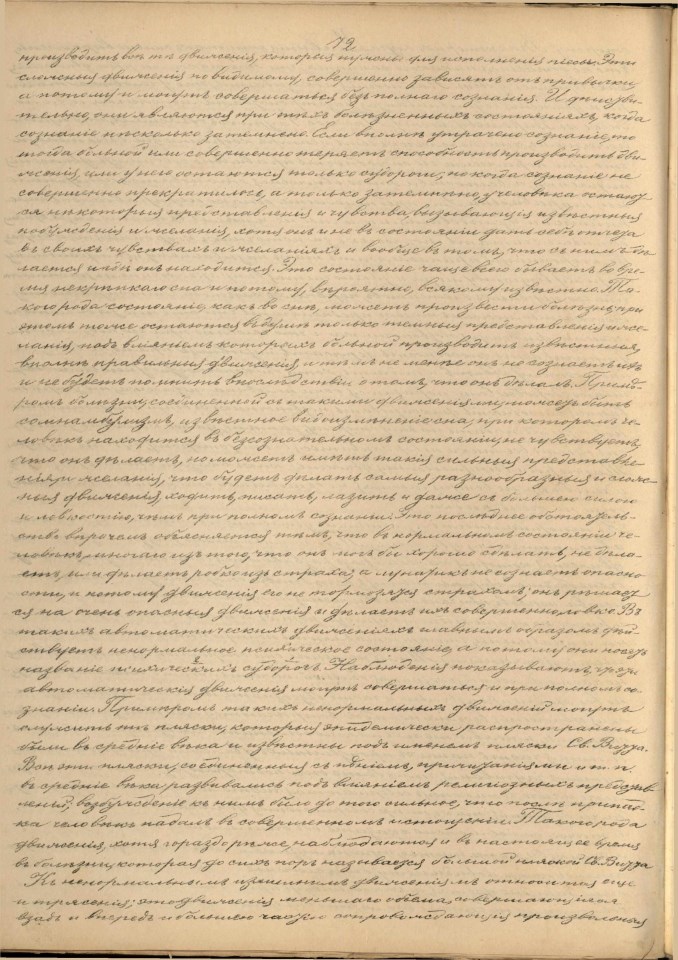 72
производитъ все тѣ движенія, которыя нужны для исполненія піесы. Эти
сложныя движенія по видимому, совершенно зависятъ отъ привычки,
а потому и могутъ совершаться безъ полнаго сознанія. И дѣйстви-
тельно, они являются при тѣхъ болѣзненныхъ состояніяхъ, когда
сознаніе нѣсколько затемнено. Если вполнѣ утрачено сознаніе, то
тогда больной или совершенно теряетъ способность производить дви-
женія, или у него остаются только судороги; но когда сознаніе не
совершенно прекратилось, а только затемнено, у человѣка остают-
ся нѣкоторыя представленія и чувства, вызывающія извѣстныя
побужденія и желанія, хотя онъ и не въ состояніи дать себѣ отчета
въ своихъ чувствахъ и желаніяхъ и вообще въ томъ, что съ нимъ дѣ-
лается и гдѣ онъ находится. Это состояніе чаще всего бываетъ во вре-
мя некрѣпкаго сна и потому, вѣроятно, всякому извѣстно. Та-
кого рода состояніе, какъ во снѣ, можетъ произвести болѣзнь; при
этомъ тоже остаются въ душѣ только темныя представленія и же-
ланія, подъ вліяніемъ которыхъ больной производитъ извѣстныя,
вполнѣ правильныя движенія, и тѣмъ не менѣе онъ не сознаетъ ихъ
и не будетъ помнить впослѣдствіи о томъ, что онъ дѣлалъ. Примѣ-
ромъ болѣзни, соединенной съ такими движеніями, можетъ быть
сомнамбулизмъ, извѣстное видоизмѣненіе сна, при которомъ че-
ловѣкъ находится въ безсознательномъ состояніи, не чувствуетъ,
что онъ дѣлаетъ, но можетъ имѣть такія сильныя представле-
нія и желанія, что будетъ дѣлать самыя разнообразныя и слож-
ныя движенія, ходить, писать, лазить и даже съ большею силою
и ловкостію, чѣмъ при полномъ сознаніи. Это послѣднее обстоятель-
ство впрочемъ объясняется тѣмъ, что въ нормальномъ состояніи че-
ловѣкъ многаго изъ того, что онъ могъ бы хорошо сдѣлать, не дѣла-
етъ, или дѣлаетъ робко изъ страха; а лунатикъ не сознаетъ опасно-
сти, и потому движенія его не тормозятся страхомъ; онъ рѣшает-
ся на очень опасныя движенія и дѣлаетъ ихъ совершенно ловко. Въ
такихъ автоматическихъ движеніяхъ главнымъ образомъ дѣй-
ствуетъ ненормальное психическое состояніе, а потому они носятъ
названіе психическихъ судорогъ. Наблюденія показываютъ, что
автоматическія движенія могутъ совершаться и при полномъ со-
знаніи. Примѣромъ такихъ ненормальныхъ движеній могутъ
служить тѣ пляски, которыя эпидемически распространены
были въ средніе вѣка и извѣстны подъ именемъ пляски Св. Витта.
Всѣ эти пляски, соединенныя съ пѣніемъ, причитаніями и т. п.
въ средніе вѣка развивались подъ вліяніемъ религіозныхъ
возбужденіе къ нимъ было до того сильное, что послѣ припад-
ка человѣкъ падалъ въ совершенномъ истощеніи. Такого рода
движенія, хотя гораздо рѣже, наблюдаются и въ настоящее время
въ болѣзни, которая до сихъ поръ называется большой пляской Св. Витта
Къ ненормальнымъ движеніямъ относится еще
и трясенія; это движенія меньшаго объема, совершающіяся
взадъ и впередъ и большею частію сопровождающія произвольныя